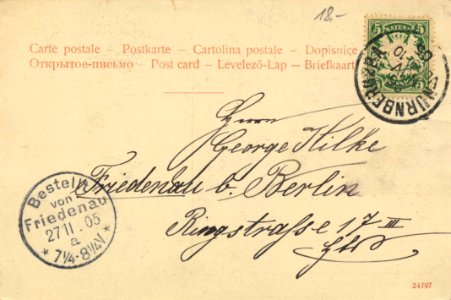 18.-
Carte postale - Postkarte - Cartolina postale - Dopisnice
Открытое-письмо - Post card - Levelező-Lap - Briefkaart
5 BAYERN 5
NÜRNBERG
Herrn
George Hilke
Friedenau b. Berlin
Ringstrasse 17 III
Bestellt
von
Friedenau
27 11. 05
a
* 7¼-8¼V *
24197